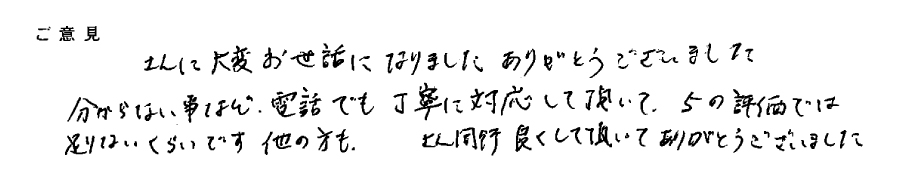 ご意見
さんに大変お世話になりました ありがとうございました
分からない事など、電話でも丁寧に対応して頂いて、5の評価では
足りないくらいです 他の方も、 さん同様 良くして頂いてありがとうございました